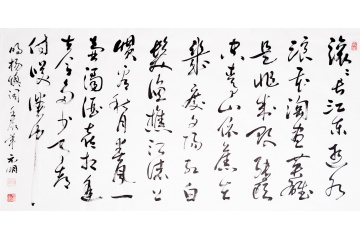 滚滚长江东逝水
浪花淘尽英雄
是非成败转头
空青山依旧在
几度夕阳红白
发渔樵江渚上
惯看秋月春风一
壶浊酒喜相逢
古今多少事都
付笑谈中
明杨慎词